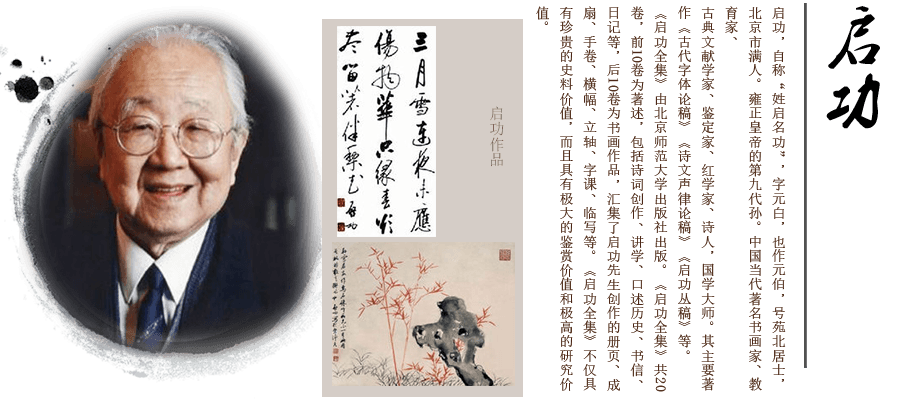 启功
启功，自称“姓启名功”，字元白，也作元伯，号苑北居士，
北京市满人。雍正皇帝的第九代孙。中国当代著名书画家、教
育家、
古典文献学家、鉴定家、红学家、诗人，国学大师。其主要著
作《古代字体论稿》《诗文声律论稿》《启功丛稿》等。
《启功全集》由北京师范大学出版社出版。《启功全集》共20
卷，前10卷为著述，包括诗词创作、讲学、口述历史、书信、
日记等，后10卷为书画作品，汇集了启功先生创作的册页、成
扇、手卷、横幅、立轴、字课、临写等。《启功全集》不仅具
有珍贵的史料价值，而且具有极大的鉴赏价值和极高的研究价
值。
启功作品
三月雪連夜未應
傷物華只緣春欲
盡留著伴梨花 启功